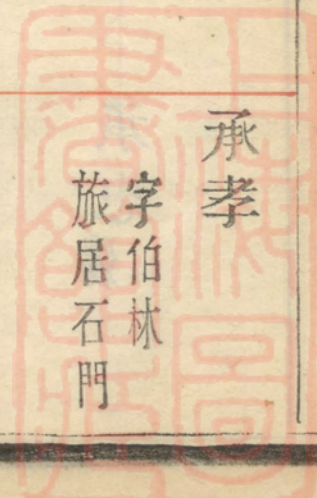 承孝
字伯林
旅居石門